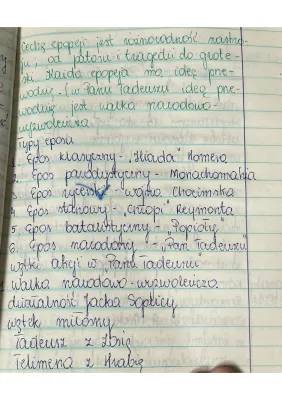 Cechą epopeji jest różnorodność nastro-
ju, od patosu i tragedii do grote-
ski. Każda epopeja ma ideę prze-
wodnią - (w Panu Tadeuszu ideę prze-
wodnią jest walka narodowo-
wyzwoleńcza
Typy eposu
1. Epos klasyczny - „Iliada” Homera
2. Epos parodystyczny - Monachomania
3. Epos rycerski - wojna Chocimska
4. Epos stanowy - „Chłopi” Reymonta
5. Epos batalistyczny - „Popioły”
6. Epos narodowy - „Pan Tadeusz”
wątki akcji w „Panu Tadeuszu”
Walka narodowo-wyzwoleńcza
działalność Jacka Soplicy
wątek miłosny
Tadeusz z Zosią
Telimena z Hrabią